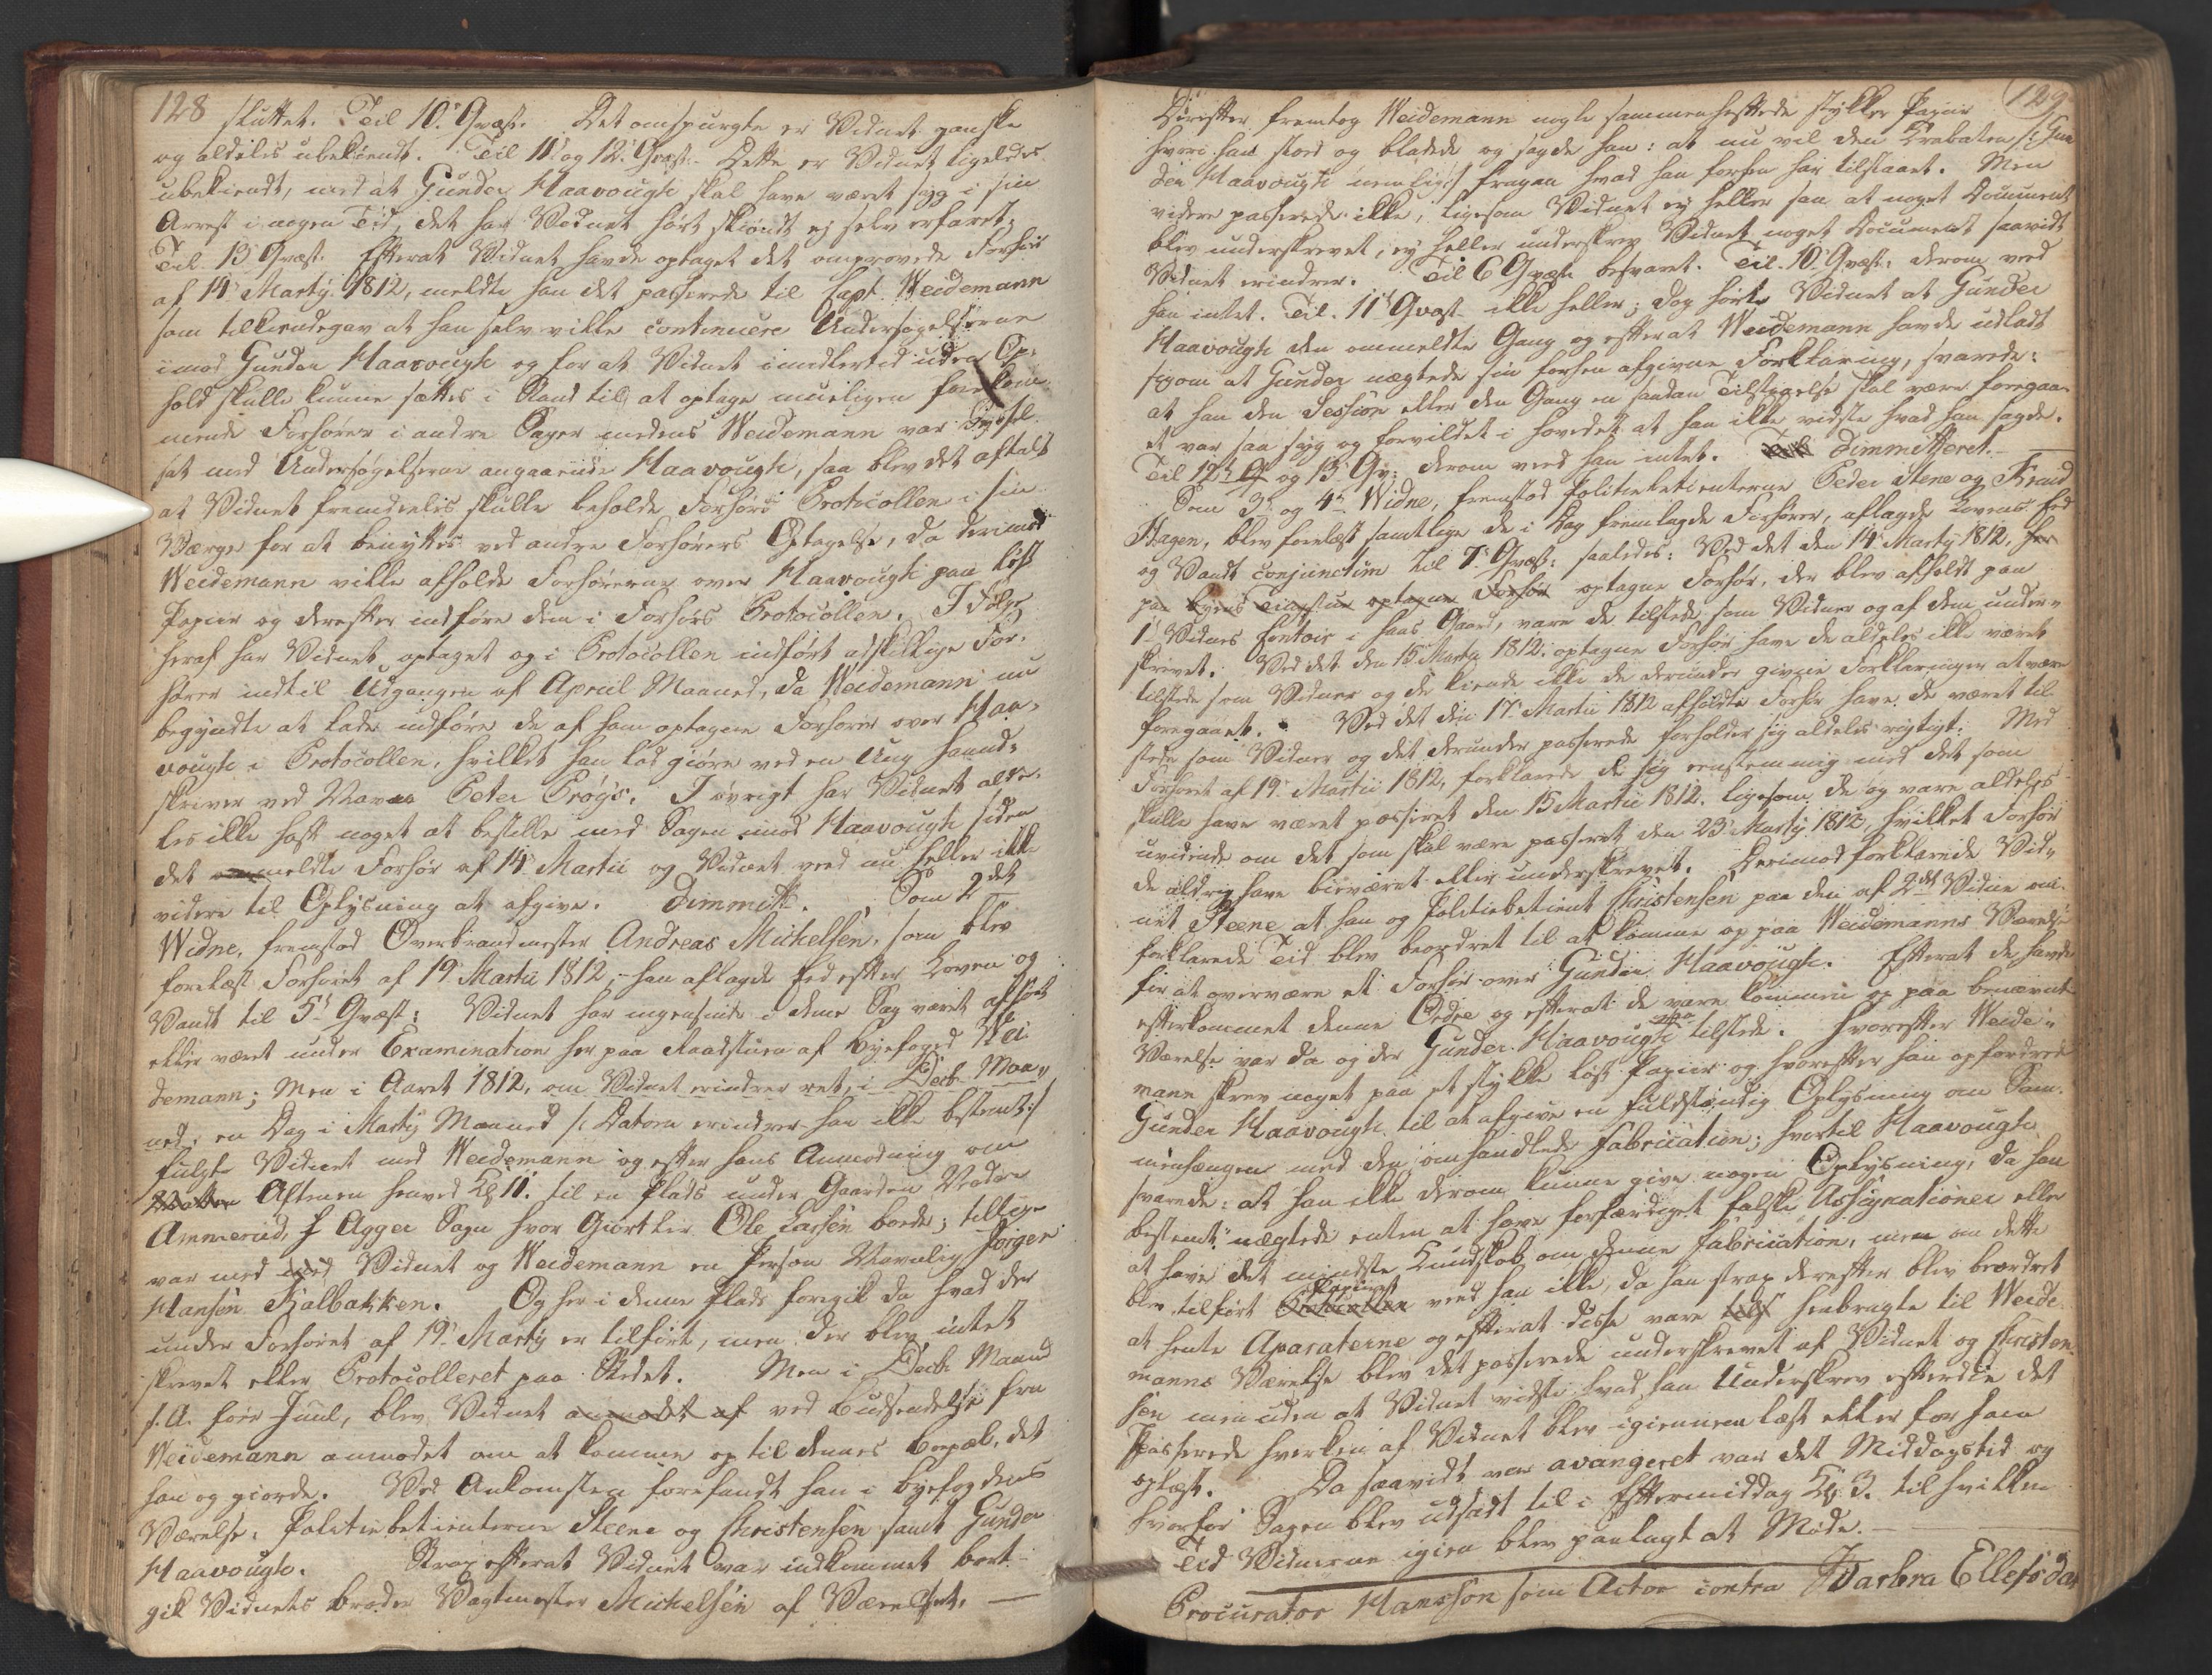 128
sluttet. Til 10. Qvæst. Det omspurgte er Vidnet ganske
og aldeles ubekiendt. Til 11 og 12. Qvæst. Dette er Vidnet ligeledes
ubekiendt, med at Gunder Haavough skal have været syg i sin
Arrest i nogen Tid, det har Vidnet hørt skiøndt ej selv erfaret;
Til 13 Qvæst. Efterat Vidnet havde optaget det omprovede Forhør
af 14 Martij 1812, meldte han det passerede til Capt. Weidemann
som tilkiendegav at han selv vilde continuere Undersøgelserne
imod Gunder Haavough og for at Vidnet imidlertid uden Op-
hold skulle kunne sættes i Stand til at optage mueligen forekom-
mende Forhører i andre Sager medens Weidemann var byssel-
sat med Undersøgelserne angaaende Haavough, saa blev det aftalt
at Vidnet fremdeeles skulle beholde Forhørs Protocollen i sin
Værge for at benyttes ved andre Forhørers Optagelse, da derimod
Weidemann vilde afholde Forhørerne over Haavough paa løst
Papier og derefter indføre dem i Forhørs Protocollen. I Følge
heraf har Vidnet optaget og i Protocollen indført adskillige For-
hører indtil Udgangen af April Maaned, da Weidemann nu
begyndte at lade indføre de af ham optagne Forhører over Haa-
vough i Protocollen, hvilket han lod giøre ved en Ung Haand-
skriver ved Navn Peter Krøgs. I øvrigt har Vidnet alde-
les ikke haft noget at bestille med Sagen imod Haavough siden
det meldte Forhør af 14 Martii og Vidnet veed nu heller ikke
videre til Oplysning at afgive. Dimmitt. Som 2det
Widne, fremstod Overbrandmester Andreas Michelsen, som blev
forelæst Forhøret af 19 Martii 1812, han aflagde Eed efter Loven og
Vandt til 5t Qvæst: Vidnet har ingensinde i denne Sag været afhørt
eller været under Examination her paa Raadstuen af Byefoged Wei-
demann; Men i Aaret 1812, om Vidnet erindrer ret, i Decb. Maa-
ned, en Dag i Martij Maaned /: Datoen erindrer han ikke bestemt:/
fulgte Vidnet med Weidemann og efter hans Anmodning om
Aftenen henved Kl 11. til en Plads under Gaarden Nedre
Ammerud, i Agger Sogn hvor Giørtler Ole Larsen boede; tillige
var med Vidnet og Weidemann en Person Navnlig Jørgen
Hansen Kalbakken. Og her i denne Plads foregik da hvad der
under Forhøret af 19 Martij er tilført, men der blev intet
skrevet eller Protocolleret paa Stedet. Men i Decb. Maaned
s. A. før Juul, blev Vidnet anmodet af ved Budsendelse fra
Weidemann anmodet om at komme op til dennes Bopæl, det
han og giorde. Ved Ankomsten forefandt han i Byefogdens
Værelse, Politiebetienterne Steene og Christensen samt Gunder
Haavough. Strax efterat Vidnet var indkommet bort-
gik Vidnets Broder Vagtmester Michelsen af Værelset. —
129
Derefter fremtog Weidemann nogle sammenheftede stykker Papir
hvori han stod og bladede og sagde han: at nu vil den Krabaten /: Gun
der Haavough nemlig:/ fragaa hvad han forhen har tilstaaet. Men
videre passerede ikke, ligesom Vidnet ey heller saa at noget Document
blev underskrevet, ey heller underskrev Vidnet noget Document saavidt
Vidnet erindrer. Til 6 Qvæst. besvaret. Til 10. Qvæst. derom veed
han intet. Til 11 Qvæst. ikke heller; dog hørte Vidnet at Gunder
Haavough den ommeldte Gang og efterat Weidemann havde udladt
sig om at Gunder nægtede sin forhen afgivne Forklaring, svarede:
at han den Session eller den Gang en saadan Tilstaaelse skal være foregaa-
et var saa syg og forvildet i hovedet at han ikke vidste hvad han sagde.
Til 12te og 13 Qv: derom veed han intet. Dimmitteret.
Som 3 og 4de Widne, fremstod Politiebetienterne Peder Steene og Svend
Hagen, blev forelæst samtlige de i Sag fremlagde Forhører, aflagde Lovens Eed
og Vandt conjunctim til 7 Qvæst: saaledes: Ved det den 14 Martij 1812, her
paa Byens Tingstue optagne Forhør optagne Forhør, der blev afholdt paa
1te Vidnes Contoir i hans Gaard, vare de tilstede som Vidner og af dem under-
skrevet. Ved det den 15 Martii 1812 optagne Forhør have de aldeles ikke været
tilstede som Vidner og de kiende ikke de derunder givne Forklaringer at være
foregaaet. Ved det den 17 Martii 1812 afholdte Forhør have de været til-
stede som Vidner og det derunder passerede forholder sig aldeles rigtigt. Med
Forhøret af 19 Martii 1812, forklarede de sig eenstemmig med det som
skulle have været passeret den 15 Martii 1812. ligesom de og vare aldeles
uvidende om det som skal være passeret den 23 Martij 1812, hvilket Forhør
de aldrig have biværet eller underskrevet. Derimod forklarede Vid-
net Steene at han og Politiebetient Christensen paa den af 2det Vidne om-
forklarede Tid blev beordret til at komme op paa Weidemanns Værelse
for at overvære et Forhør over Gunder Haavough. Efterat de havde
efterkommet denne Ordre og efterat de vare kommen op paa benævnte
Værelse var da og der Gunder Haavough tilstede. Hvorefter Weide-
mann skrev noget paa et stykke løst Papiir og hvorefter han opfordrede
Gunder Haavough til at afgive en fuldstændig Oplysning om Sam-
menhængen med den omhandlede Fabrication; hvortil Haavough
svarede: at han ikke derom kunne give nogen Oplysning, da han
bestemt nægtede enten at have forfærdiget falske Assignationer eller
at have det mindste Kundskab om denne Fabrication, men om dette
blev tilført Protocollen Papiiret veed han ikke, da han strax derefter blev beordret
at hente Aparaterne og efterat disse vare henbragte til Weide-
manns Værelse blev det passerede underskrevet af Vidnet og Christen-
sen men uden at Vidnet vidste hvad han Underskrev efterdie det
Passerede hverken af Vidnet blev igiennemlæst eller for ham
oplæst. Da saavidt var avangeret var det Middagstid og
hvorfor Sagen blev udsadt til i Eftermiddag Kl 3. til hvilken
Tid Vidnerne igien blev paalagt at Møde.
Procurator Hansson som Actor contra Barbra Ellefsdat